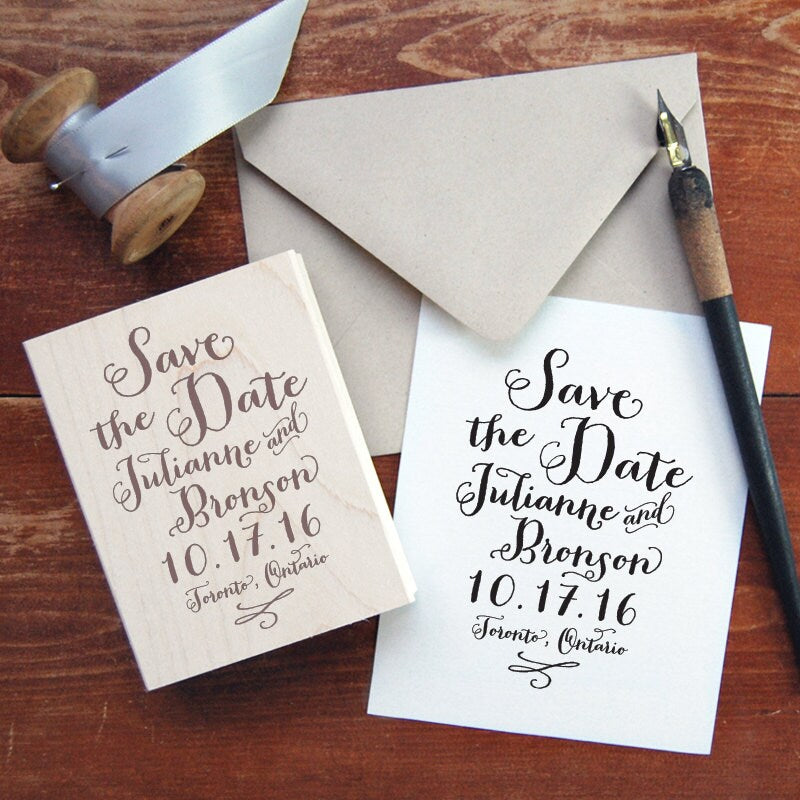 Save
the Date
Julianne and
Bronson
10.17.16
Toronto, Ontario
Save
the Date
Julianne and
Bronson
10.17.16
Toronto, Ontario